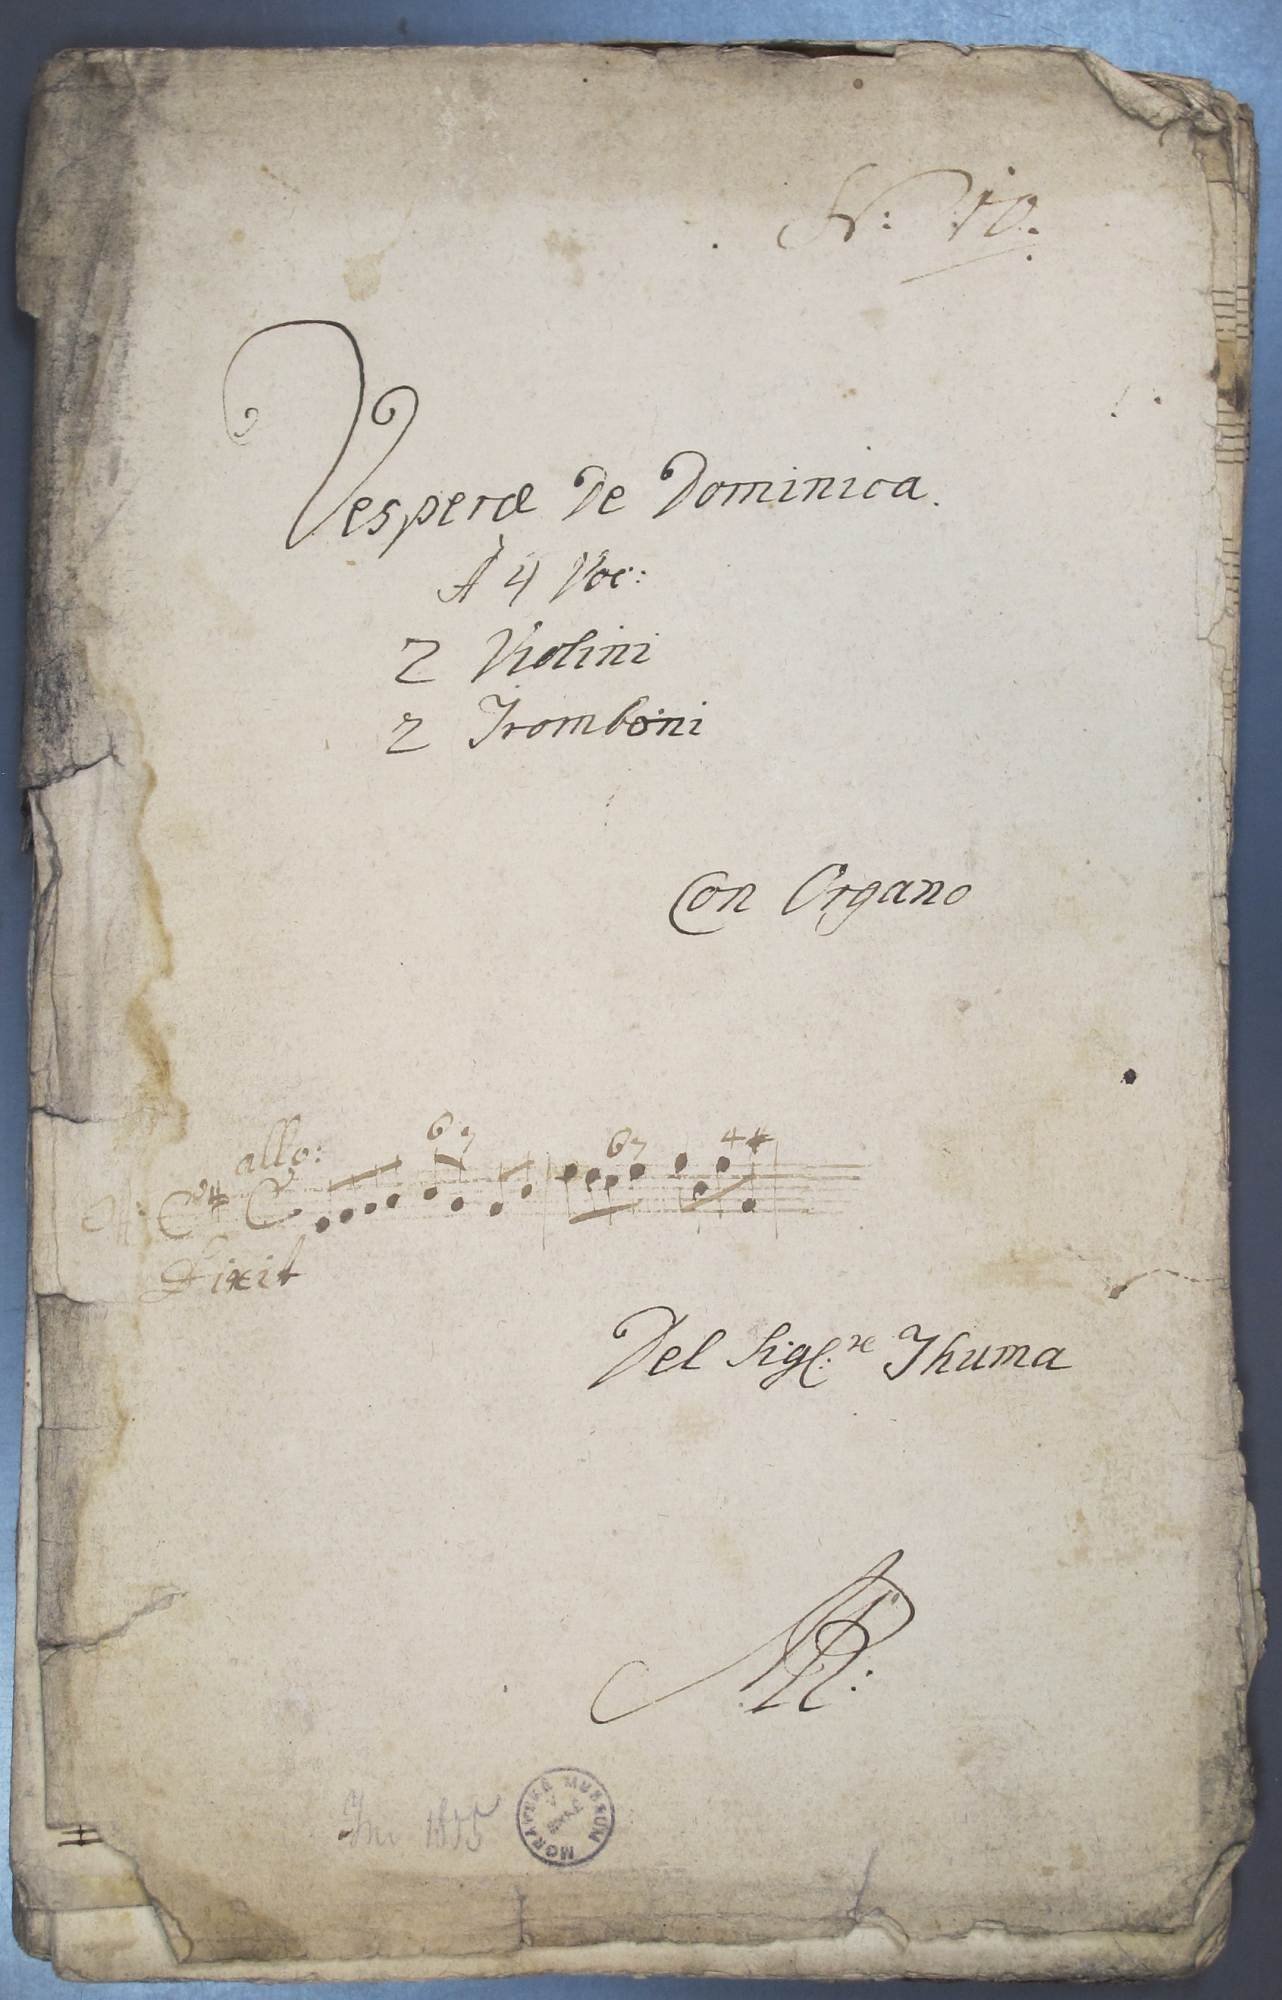 N: 10.
Vesperæ De Dominica.
À 4 Voc:
2 Violini
2 Tromboni
Con Organo
allo:
6 7 6 7 4 #
Dixit
Del Sigl:re Thuma
MORAVSKÉ MUSEUM